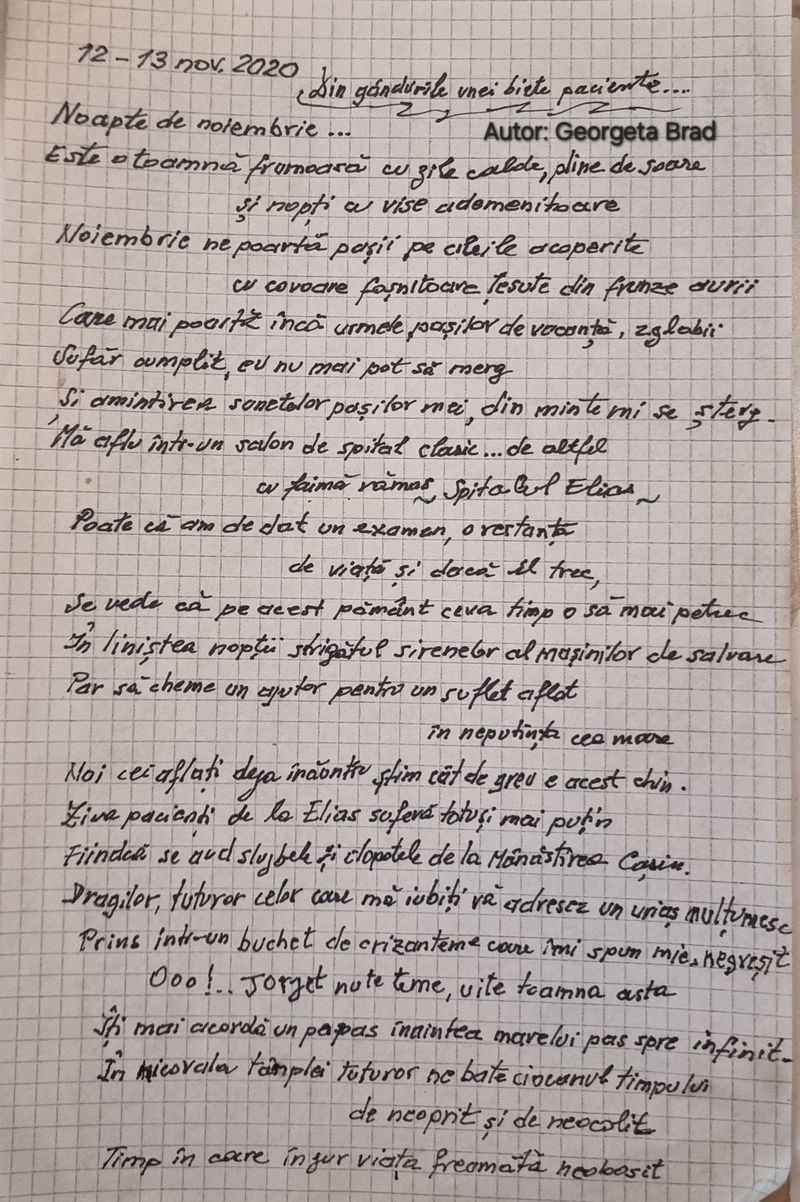 12 – 13 nov. 2020
Din gândurile unei biete paciente....
Noapte de noiembrie ...
Autor: Georgeta Brad
Este o toamnă frumoasă cu zile calde, pline de soare
și nopți cu vise ademenitoare
Noiembrie ne poartă pașii pe aleile acoperite
cu covoare foșnitoare țesute din frunze aurii
Care mai poartă încă urmele pașilor de vacanță, zglobii
Sufăr cumplit, eu nu mai pot să merg
Și amintirea sunetelor pașilor mei, din minte mi se șterg.
Mă aflu într-un salon de spital clasic... de altfel
cu faimă rămas ~ Spitalul Elias ~
Poate că am de dat un examen, o restanță
de viață și dacă îl trec,
Se vede că pe acest pământ ceva timp o să mai petrec
În liniștea nopții strigătul sirenelor al mașinilor de salvare
Par să cheme un ajutor pentru un suflet aflat
în neputința cea mare
Noi cei aflați deja înăuntru știm cât de greu e acest chin.
Ziua pacienți de la Elias suferă totuși mai puțin
Fiindcă se aud slujbele și clopotele de la Mânăstirea Cașin.
Dragilor, tuturor celor care mă iubiți vă adresez un uriaș mulțumesc
Prins într-un buchet de crizanteme care îmi spun mie, negreșit
Ooo!.. Jorget nu te teme, uite toamna asta
Îți mai acordă un popas înaintea marelui pas spre infinit.
În nicovala tâmplei tuturor ne bate ciocanul timpului
de neoprit și de neocolit
Timp în care în jur viața freamătă neobosit